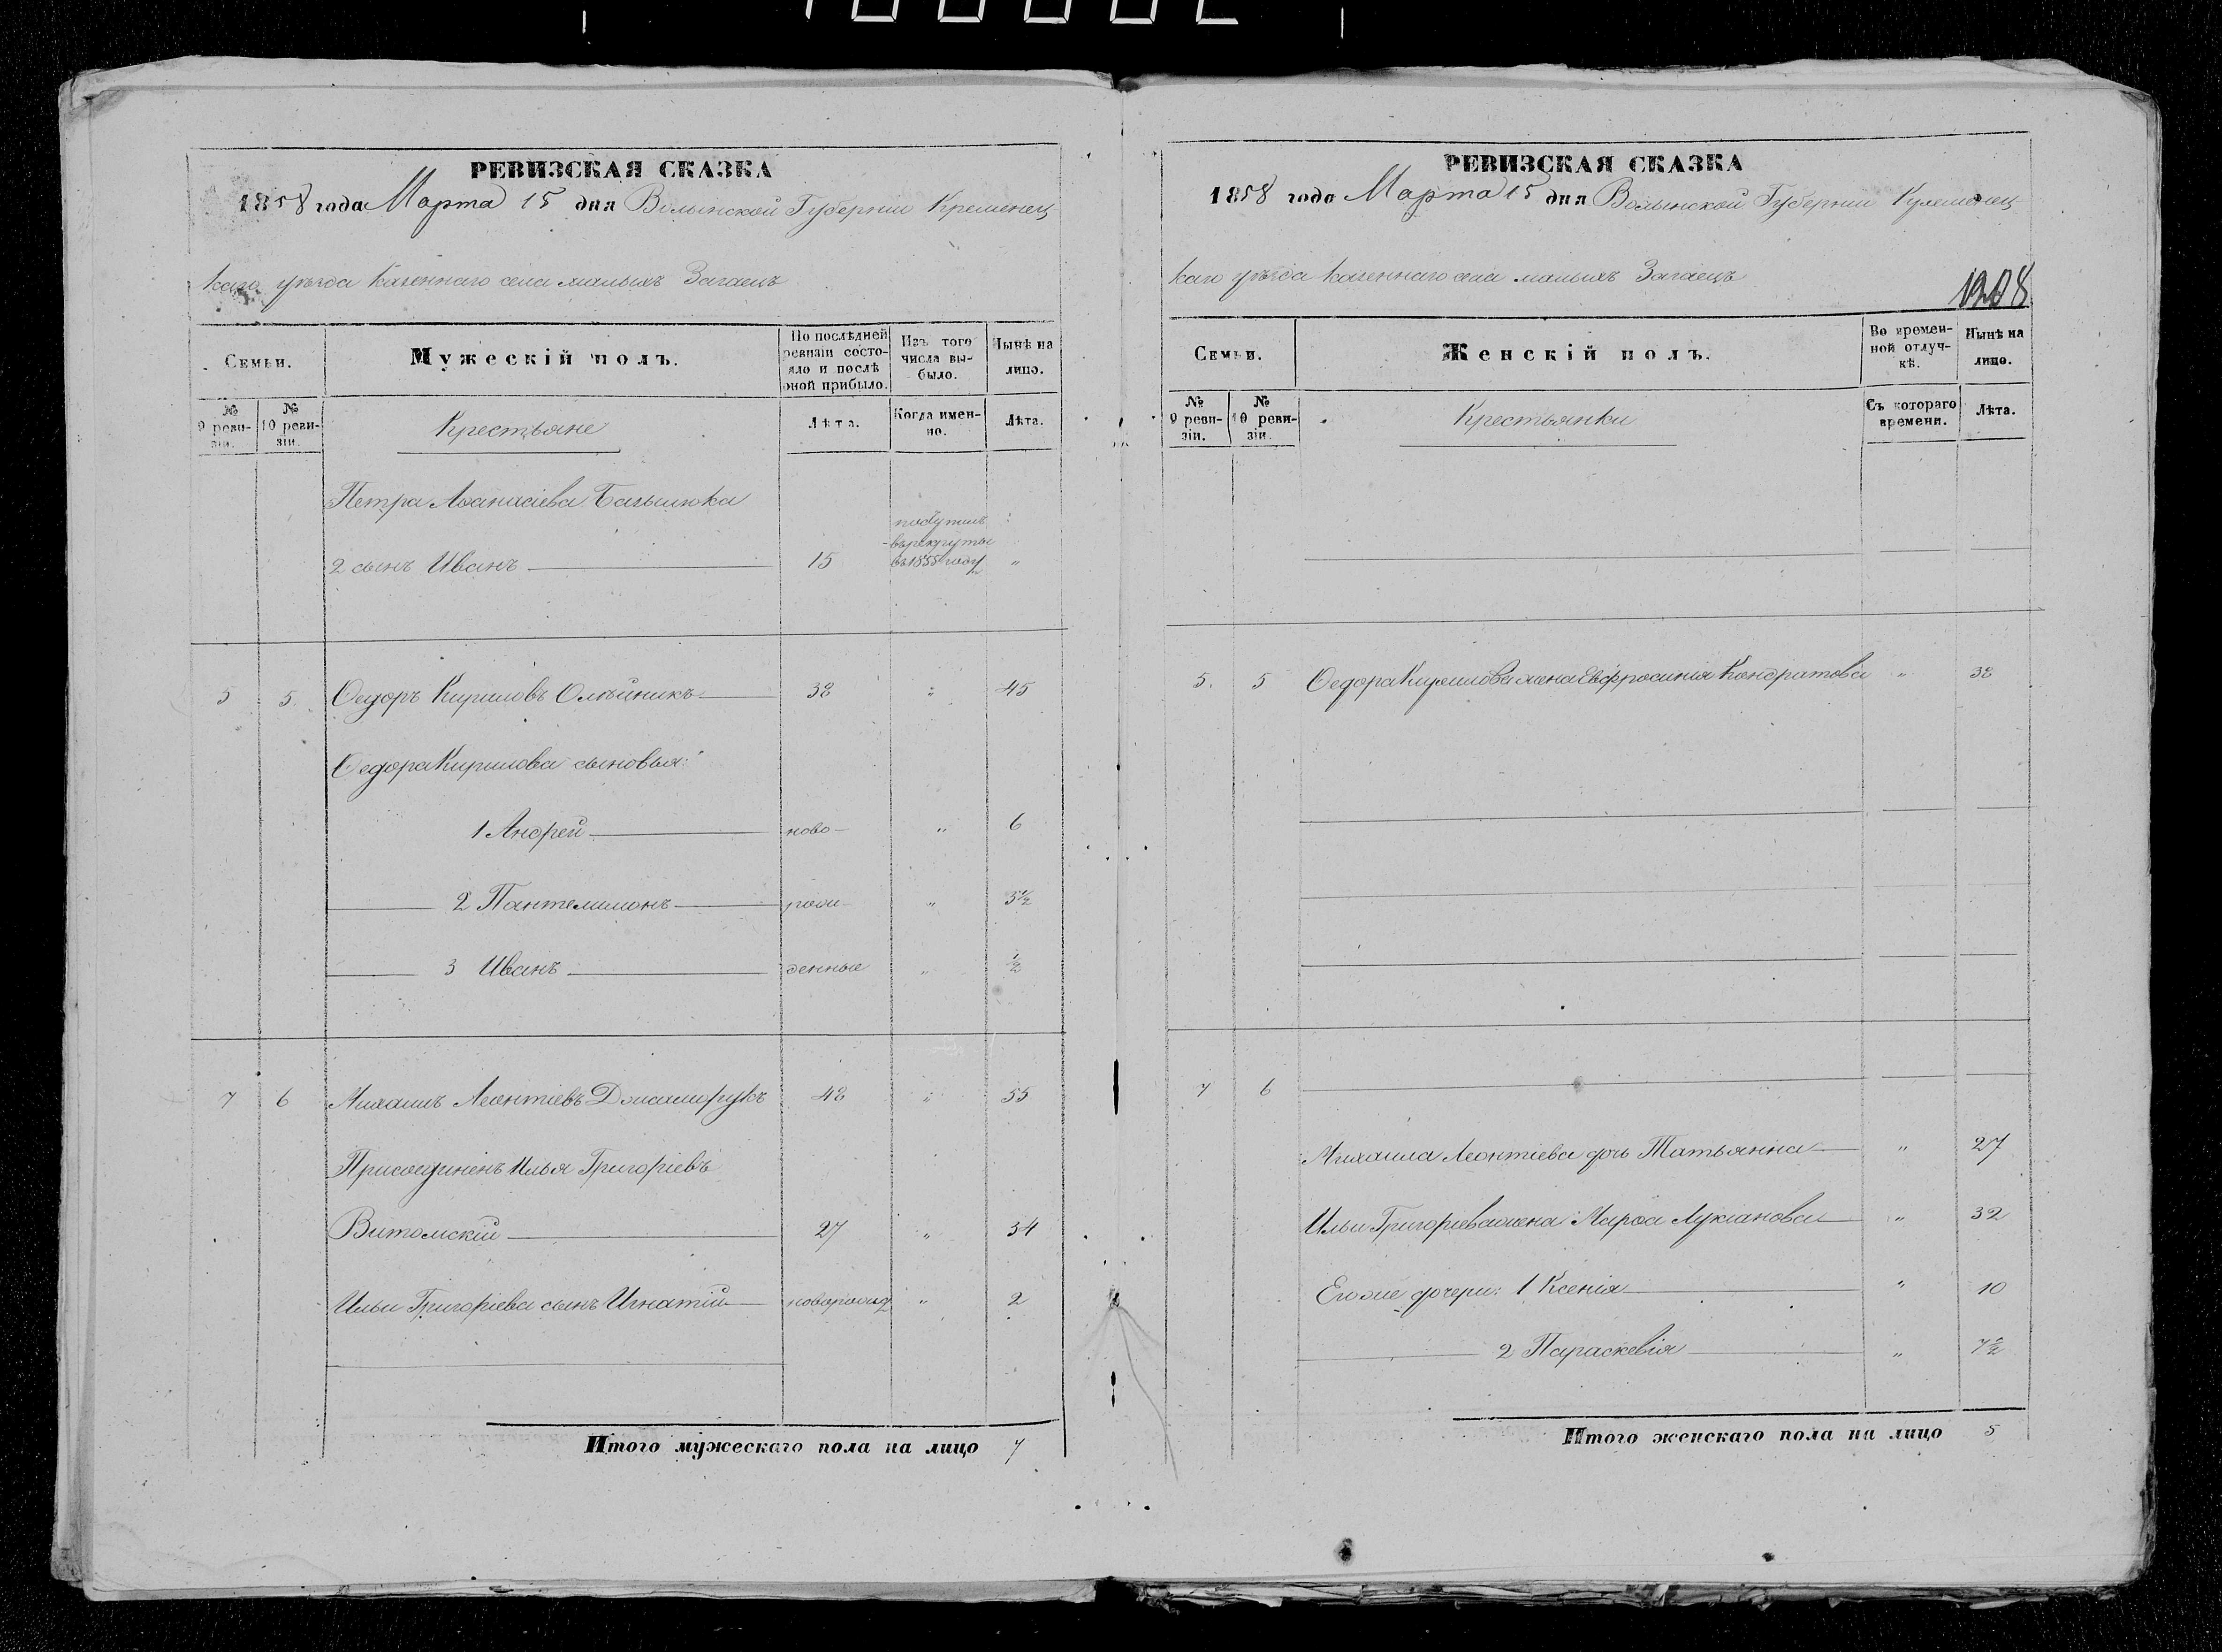 РЕВИЗСКАЯ СКАЗКА
1858 года Марта 15 дня Волынской Губернии Кременец
каго уѣзда казеннаго села малыхъ Загаецъ
Семьи.
Мужескій полъ.
По послѣдней ревизіи состояло и послѣ оной прибыло.
Изъ того числа выбыло.
Нынѣ на лицо.
№ 9 ревизіи.
№ 10 ревизіи.
Крестьяне
Лѣта.
Когда именно.
Лѣта.
Петра Аѳанасіева
поступилъ
въ рекруты
2 сынъ Иванъ 15 въ 1855 году "
5 5. Ѳедоръ Кириловъ Олѣйникъ 38 " 45
Ѳедора Кирилова сыновья:
1 Андрей ново- " 6
2 Пантелимонъ рож- " 3½
3 Иванъ денные " ½
7 6 Михаилъ Леонтіевъ 48 " 55
Присоединенъ Илья Григоріевъ
Витомскій 27 " 34
Ильи Григоріева сынъ Игнатій новорожд " 2
Итого мужескаго пола на лицо 7
РЕВИЗСКАЯ СКАЗКА
1858 года Марта 15 дня Волынской Губернии Кременец
каго уѣзда казеннаго села малыхъ Загаецъ
1208
Семьи.
Женскій полъ.
Во временной отлучкѣ.
Нынѣ на лицо.
№ 9 ревизіи.
№ 10 ревизіи.
Крестьянки
Съ котораго времени.
Лѣта.
5. 5 Ѳедора Кирилова жена Евфросинія Кондратова " 38
7 6
Михаила Леонтіева дочь Татьянна " 27
Ильи Григоріева жена Марѳа Лукіанова " 32
Егоже дочери: 1 Ксенія " 10
2 Параскевія " 7½
Итого женскаго пола на лицо 5